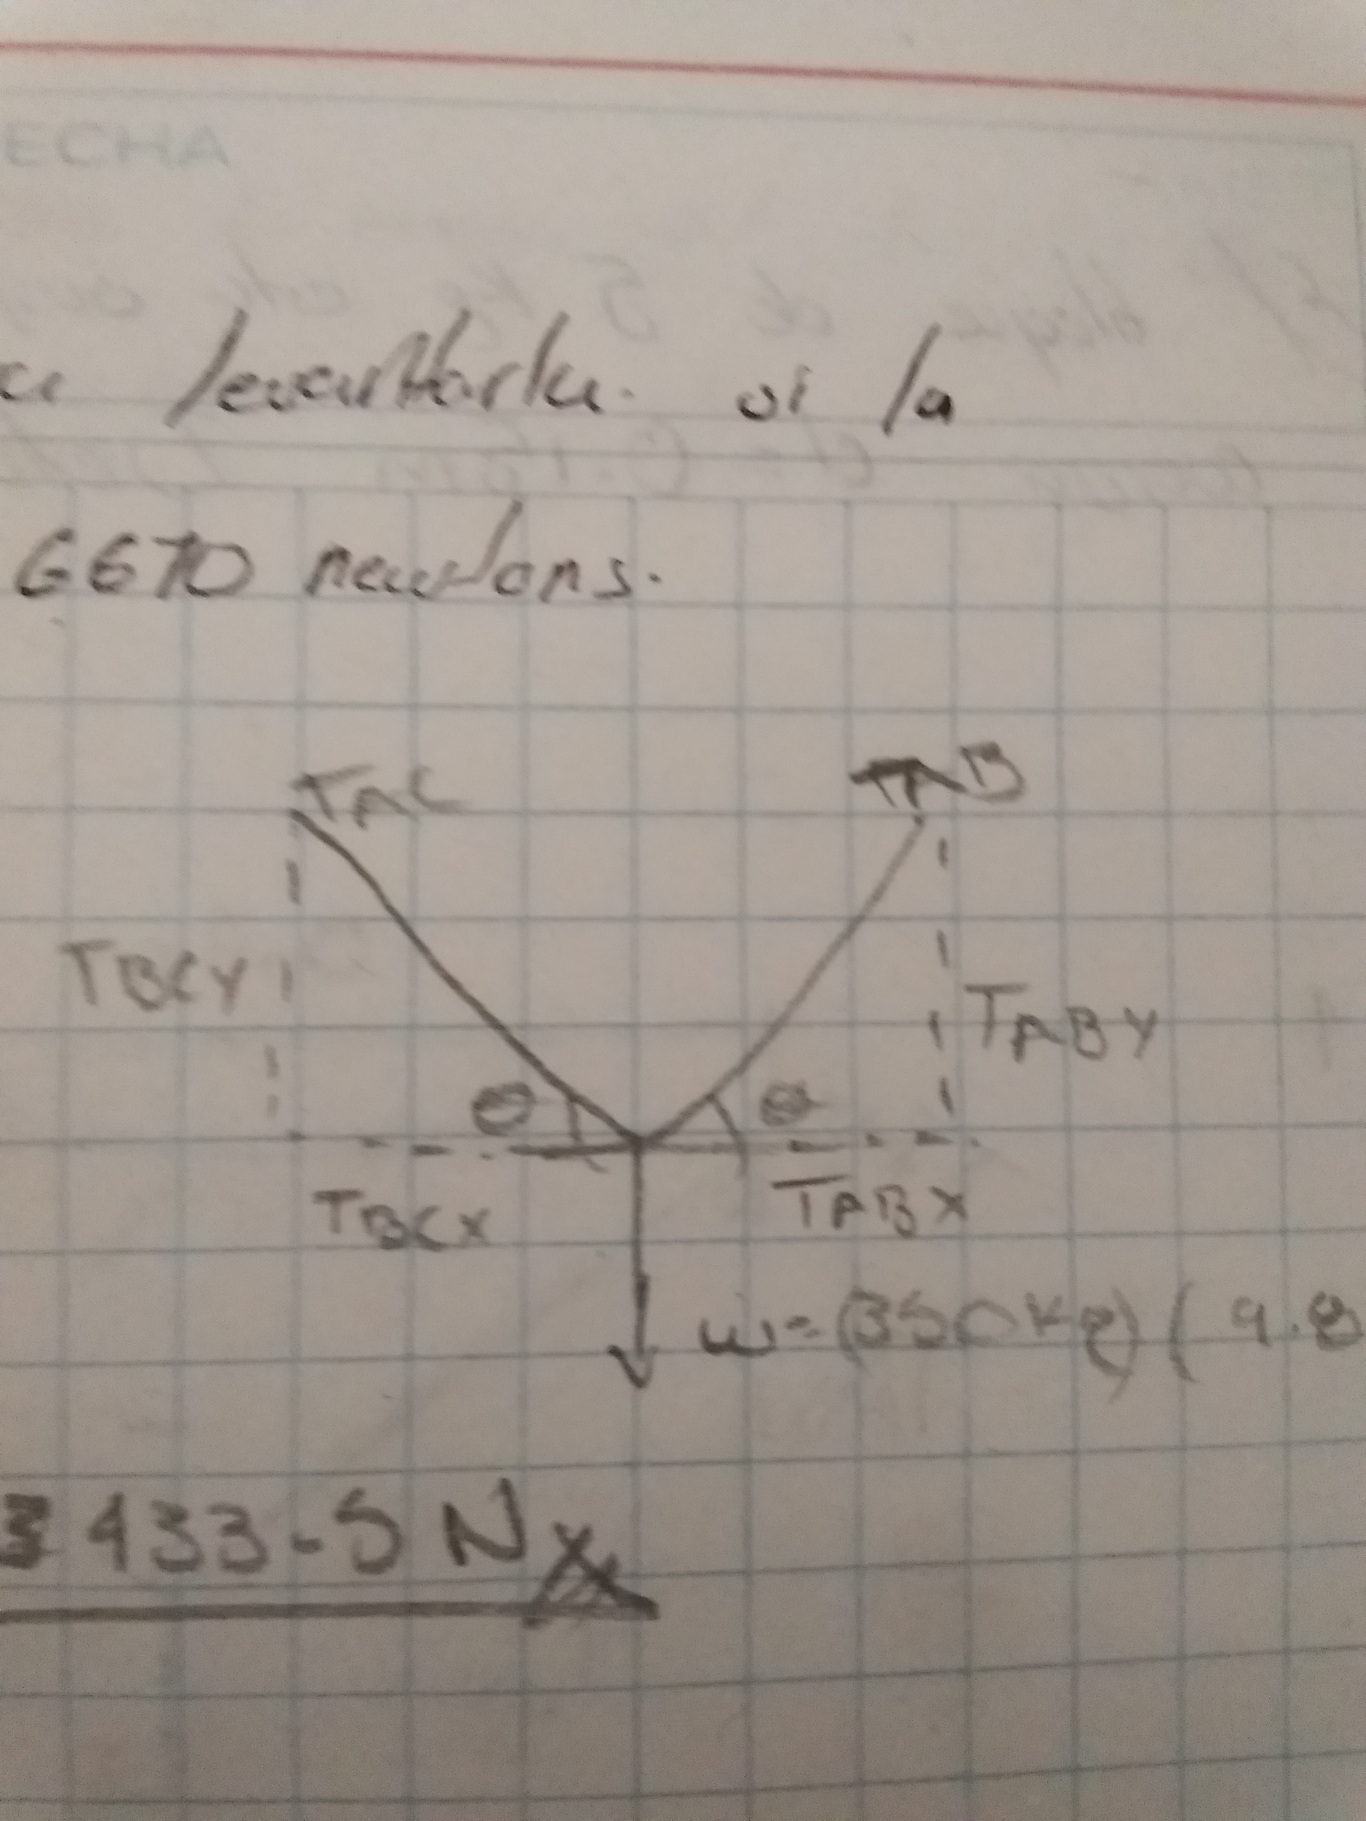 ECHA
levantarla. si la
6670 newtons.
TAC TAB
TBCY
TABY
θ θ
TBCX TABX
w=(350kg)(9.8
3433.5 N